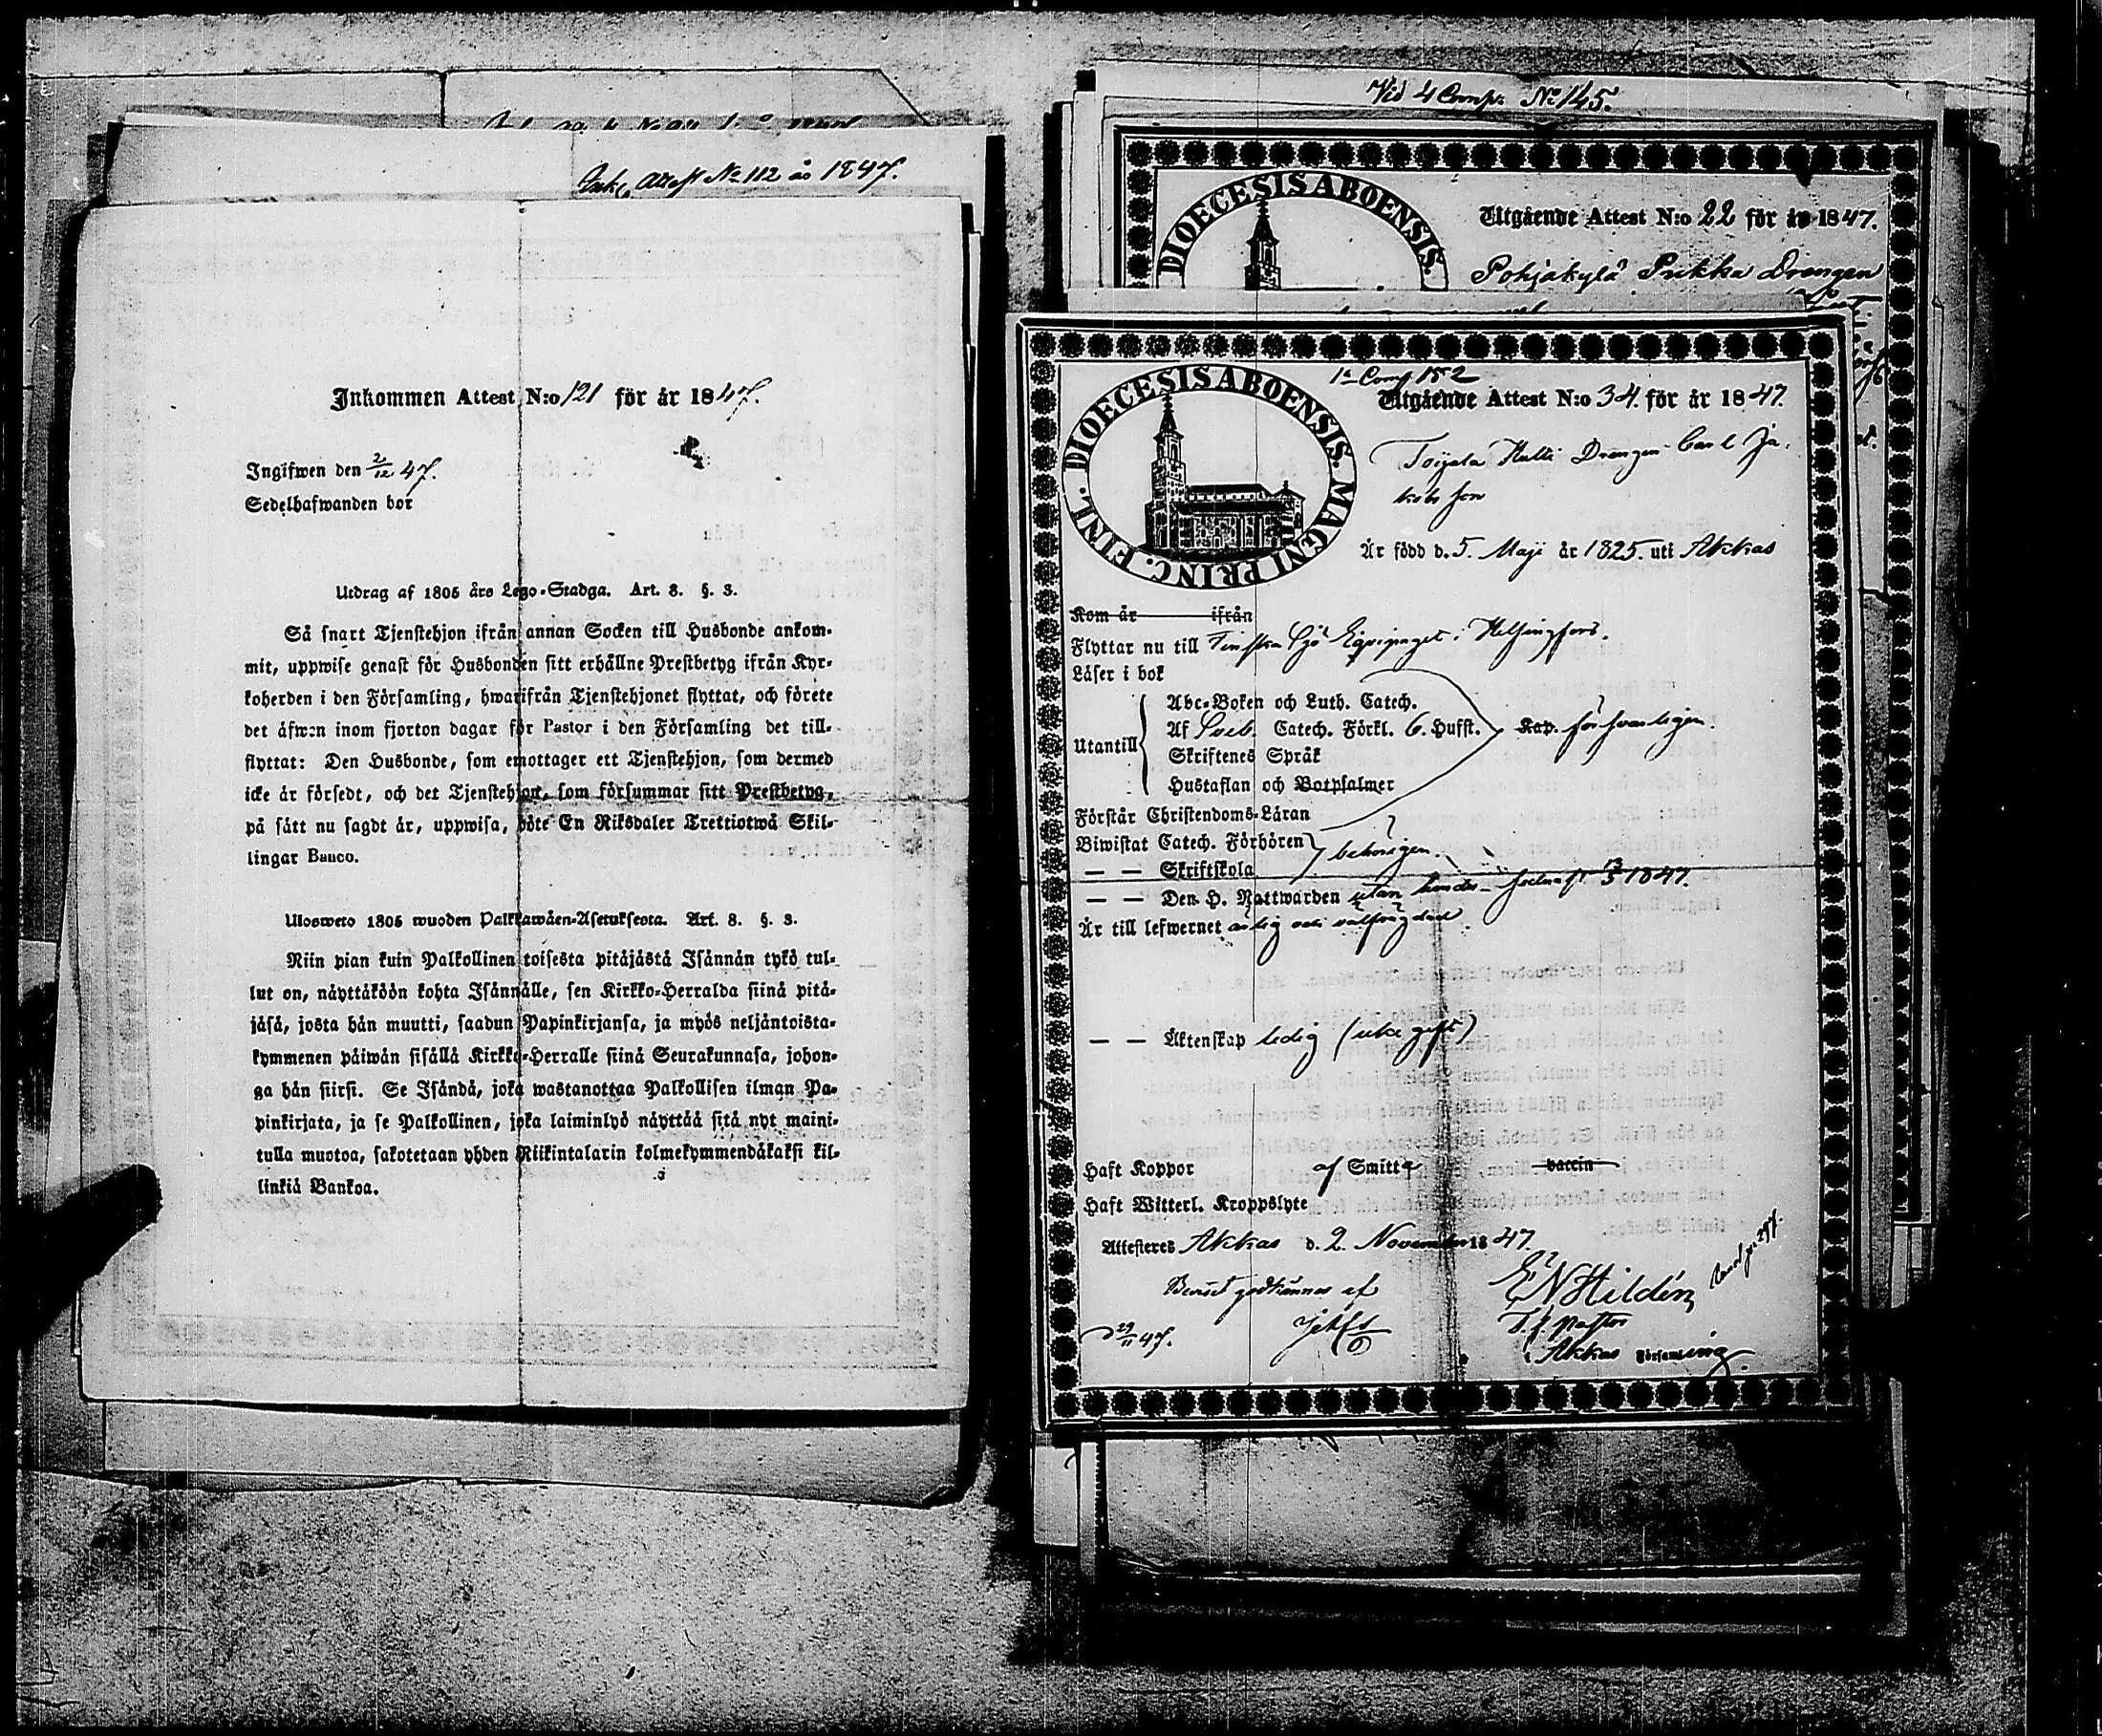 Ink. Attest No 112 år 1847.
Inkommen Attest N:o 121 för år 1847.
Ingifwen den 2/12 47.
Sedelhafwanden bor
Utdrag af 1805 års Lego-Stadga. Art. 8. §. 3.
Så snart Tjenstehjon ifrån annan Socken till Husbonde ankom-
mit, uppwise genast för Husbonden sitt erhållne Prestbetyg ifrån Kyr-
koherden i den Församling, hwarifrån Tjenstehjonet flyttat, och förete
det äfwen inom fjorton dagar för Pastor i den Församling det till-
flyttat: Den Husbonde, som emottager ett Tjenstehjon, som dermed
icke är försedt, och det Tjenstehjon, som försummar sitt Prestbetyg,
på sätt nu sagdt är, uppwisa, böte En Riksdaler Trettiotwå Skil-
lingar Banco.
Ulosweto 1805 wuoden Palkkawäen-Asetuksesta. Art. 8. §. 3.
Niin pian kuin Palkollinen toisesta pitäjästä Isännän tykö tul-
lut on, näyttäköön kohta Isännälle, sen Kirkko-Herralda siinä pitä-
jäsä, josta hän muutti, saadun Papinkirjansa, ja myös neljäntoista-
kymmenen päiwän sisällä Kirkko-Herralle siinä Seurakunnasa, johon-
ga hän siirsi. Se Isändä, joka wastanottaa Palkollisen ilman Pa-
pinkirjata, ja se Palkollinen, joka laiminlyö näyttää sitä nyt maini-
tulla muotoa, sakotetaan yhden Riikintalarin kolmekymmendäkaksi kil-
linkiä Bankoa.
Vid 4 Comp. No 145.
DIOECESIS ABOENSIS.
Utgående Attest N:o 22 för år 1847.
Pohjakylä Prikka Drengen
1a Comp. 152
DIOECESIS ABOENSIS. MAGNI PRINC. FINL.
Utgående Attest N:o 34. för år 1847.
Toijala Hutti Drengen Carl Ja-
kobsson
Är född d. 5. Maji år 1825. uti Akkas
Kom år ifrån
Flyttar nu till Finska Sjö Eqvipaget i Helsingfors.
Läser i bok
Utantill
Abc-Boken och Luth. Catech.
Af Sveb. Catech. Förkl. 6. Hufst. Kap. försvarligen.
Skriftenes Språk
Hustaflan och Botpsalmer
Förstår Christendoms-Läran
Biwistat Catech. Förhören behörigen.
— — Skriftskola
— — Den H. Nattwarden utan hinder 1847.
Är till lefwernet ärlig och välfrägdad.
— — Äktenskap ledig (icke gift)
Haft Koppor af Smitta vaccin
Haft Witterl. Kroppslyte
Attesteres Akkas d. 2. November 1847.
Beviset godkännes af
d 29/11 47.
E N Hildén
T. f. Pastor
i Akkas Församling.